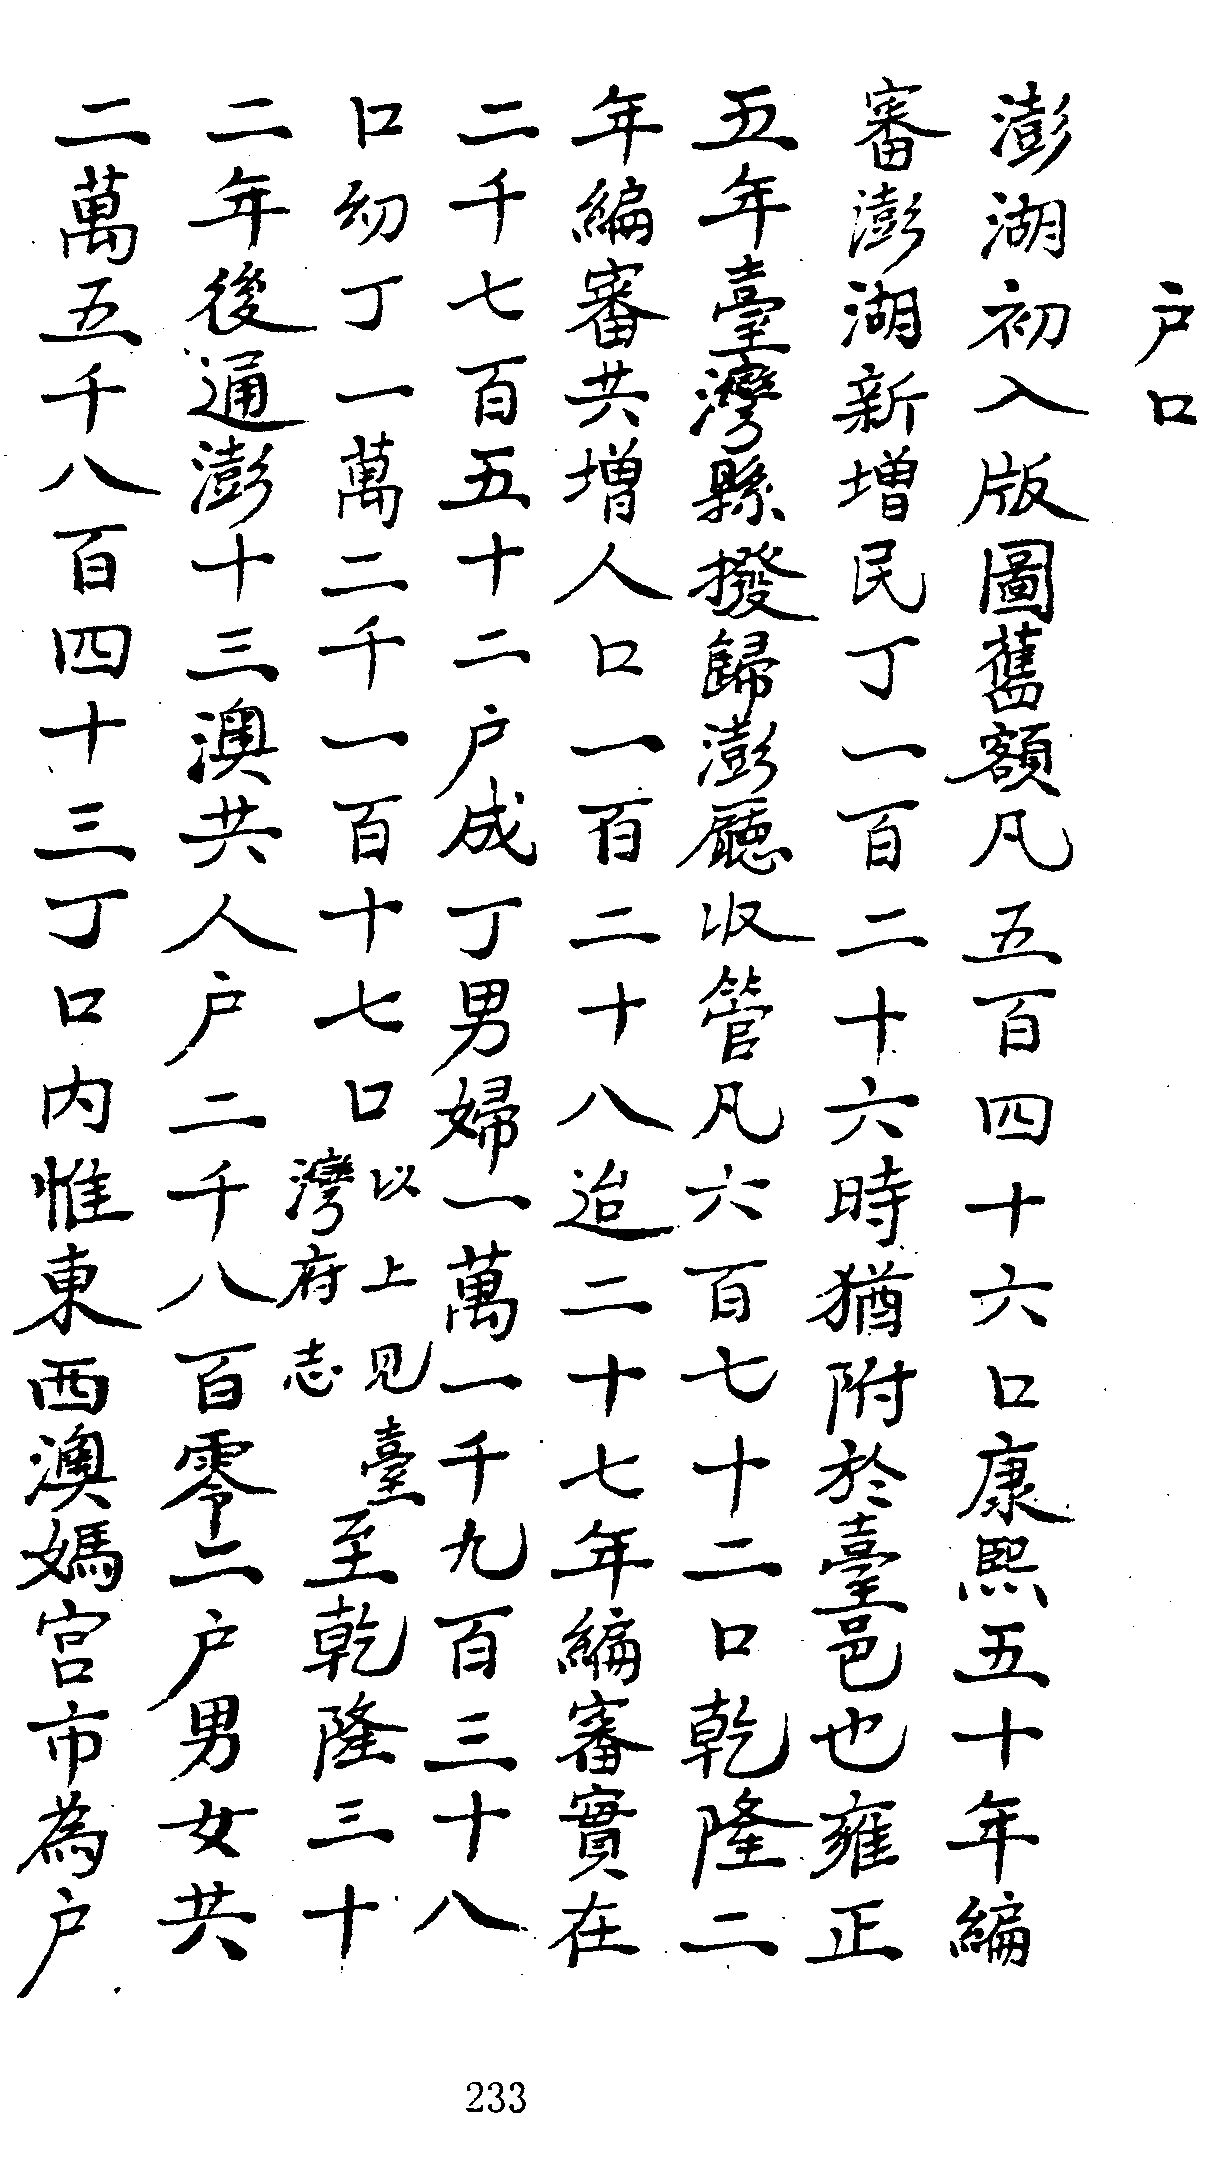 户口
澎湖初入版圖舊額凡五百四十六口康熙五十年編
審澎湖新增民丁一百二十六時猶附於臺邑也雍正
五年臺灣縣撥歸澎廳收管凡六百七十二口乾隆二
年編審共增人口一百二十八迨二十七年編審實在
二千七百五十二户成丁男婦一萬一千九百三十八
口幼丁一萬二千一百十七口以上見臺灣府志至乾隆三十
二年後通澎十三澳共人户二千八百零二户男女共
二萬五千八百四十三丁口内惟東西澳媽宫市為户
233